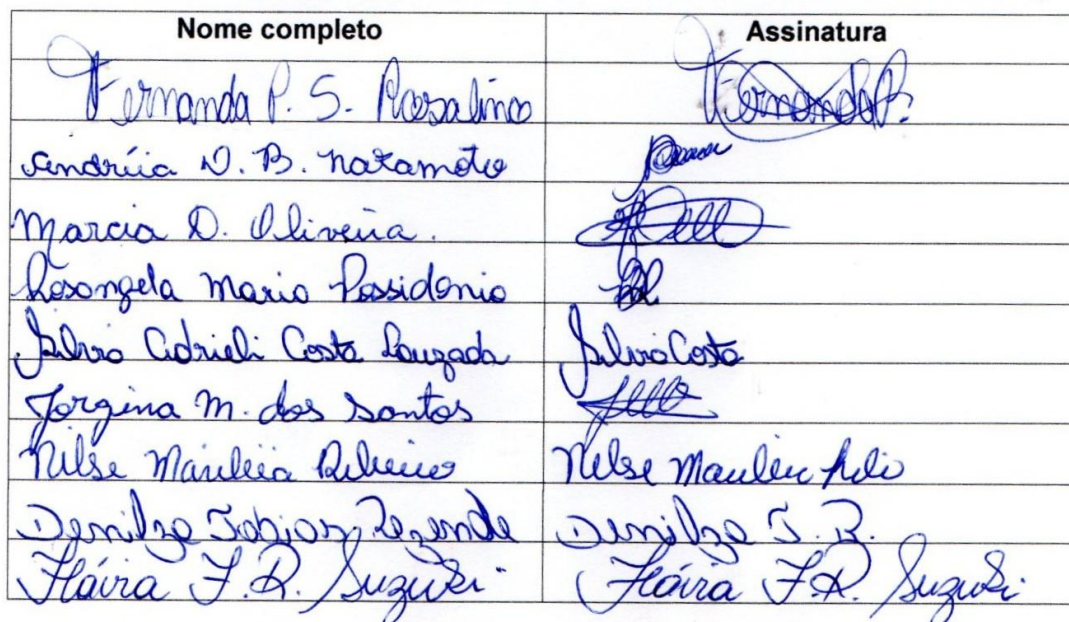 Nome completo Assinatura
Fernanda P. S. Rosalino Fernanda P.
Andréia D. B. Nakamoto
Marcia D. Oliveira.
Rosangela Maria Possidonio
Silvia Adrieli Costa Louzada Silvia Costa
Jorgina M. dos Santos
Nilse Ribeiro Nilse
Denilza Tobias Rezende Denilza T. R.
Flávia F. R. Suzuki Flávia F. R. Suzuki